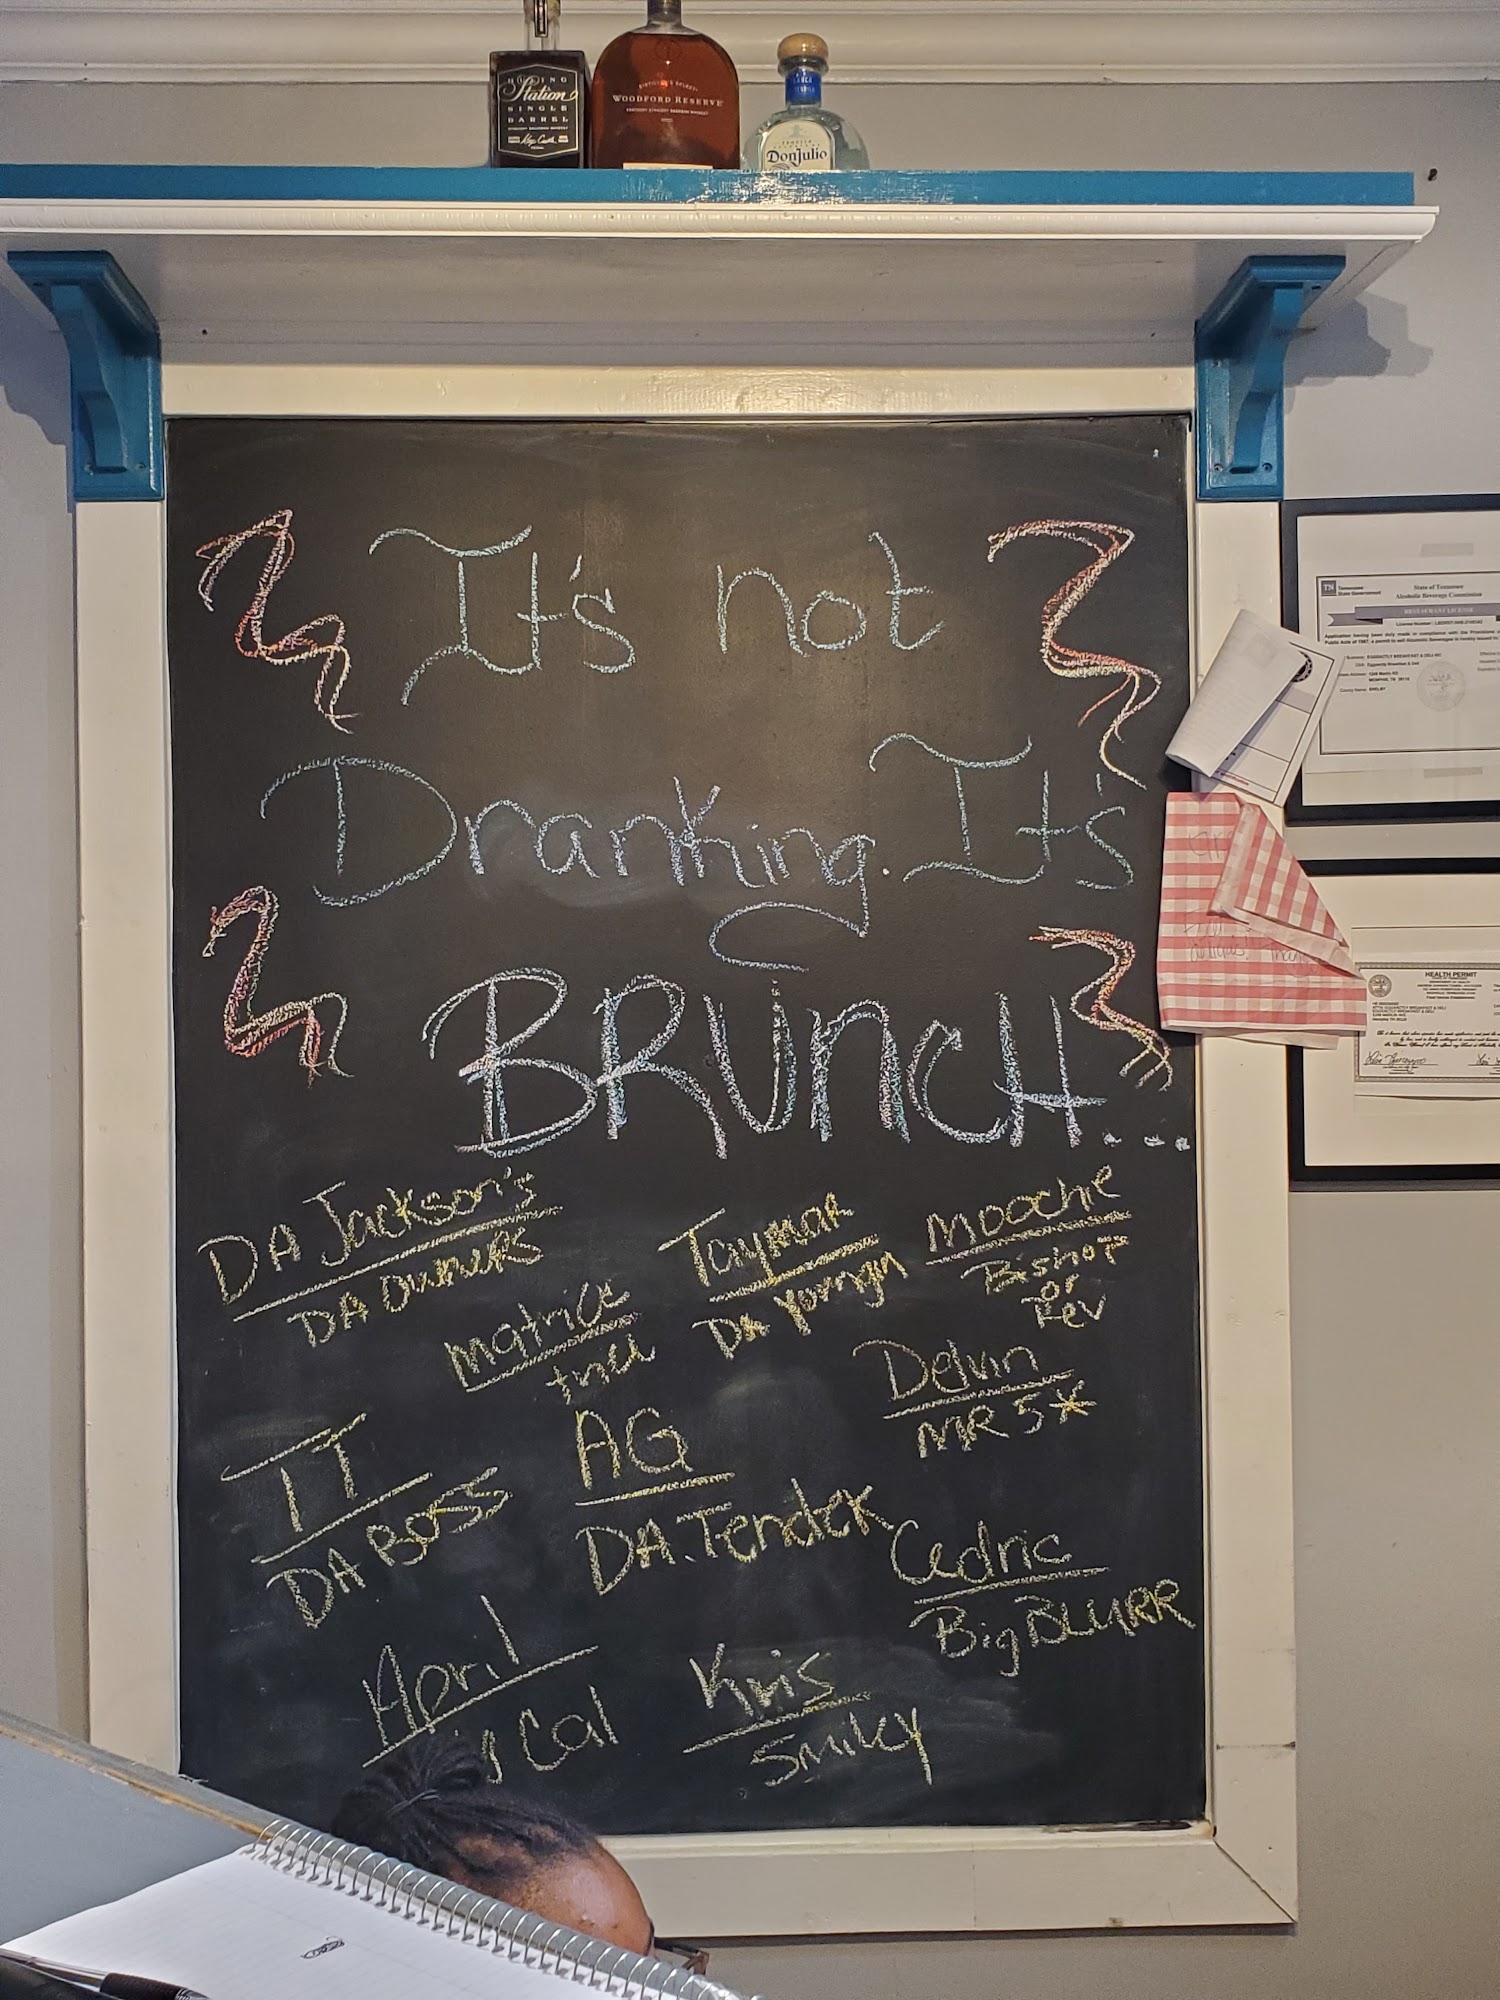 Station
SINGLE
BARREL
WOODFORD RESERVE
DonJulio
It's not
Dranking. It's
BRUnCH...
DA Jackson's
DA OwnERS
Taymar
Moochie
Bishop
or
Rev
Matrice
DA
Delvin
MR 5*
TT
DA BOSS
AG
DA. Tender
Cedric
Big BLURR
April
Cal
Kris
Smiley
TN Tennessee
State Government
State of Tennessee
Alcoholic Beverage Commission
RESTAURANT LICENSE
HEALTH PERMIT